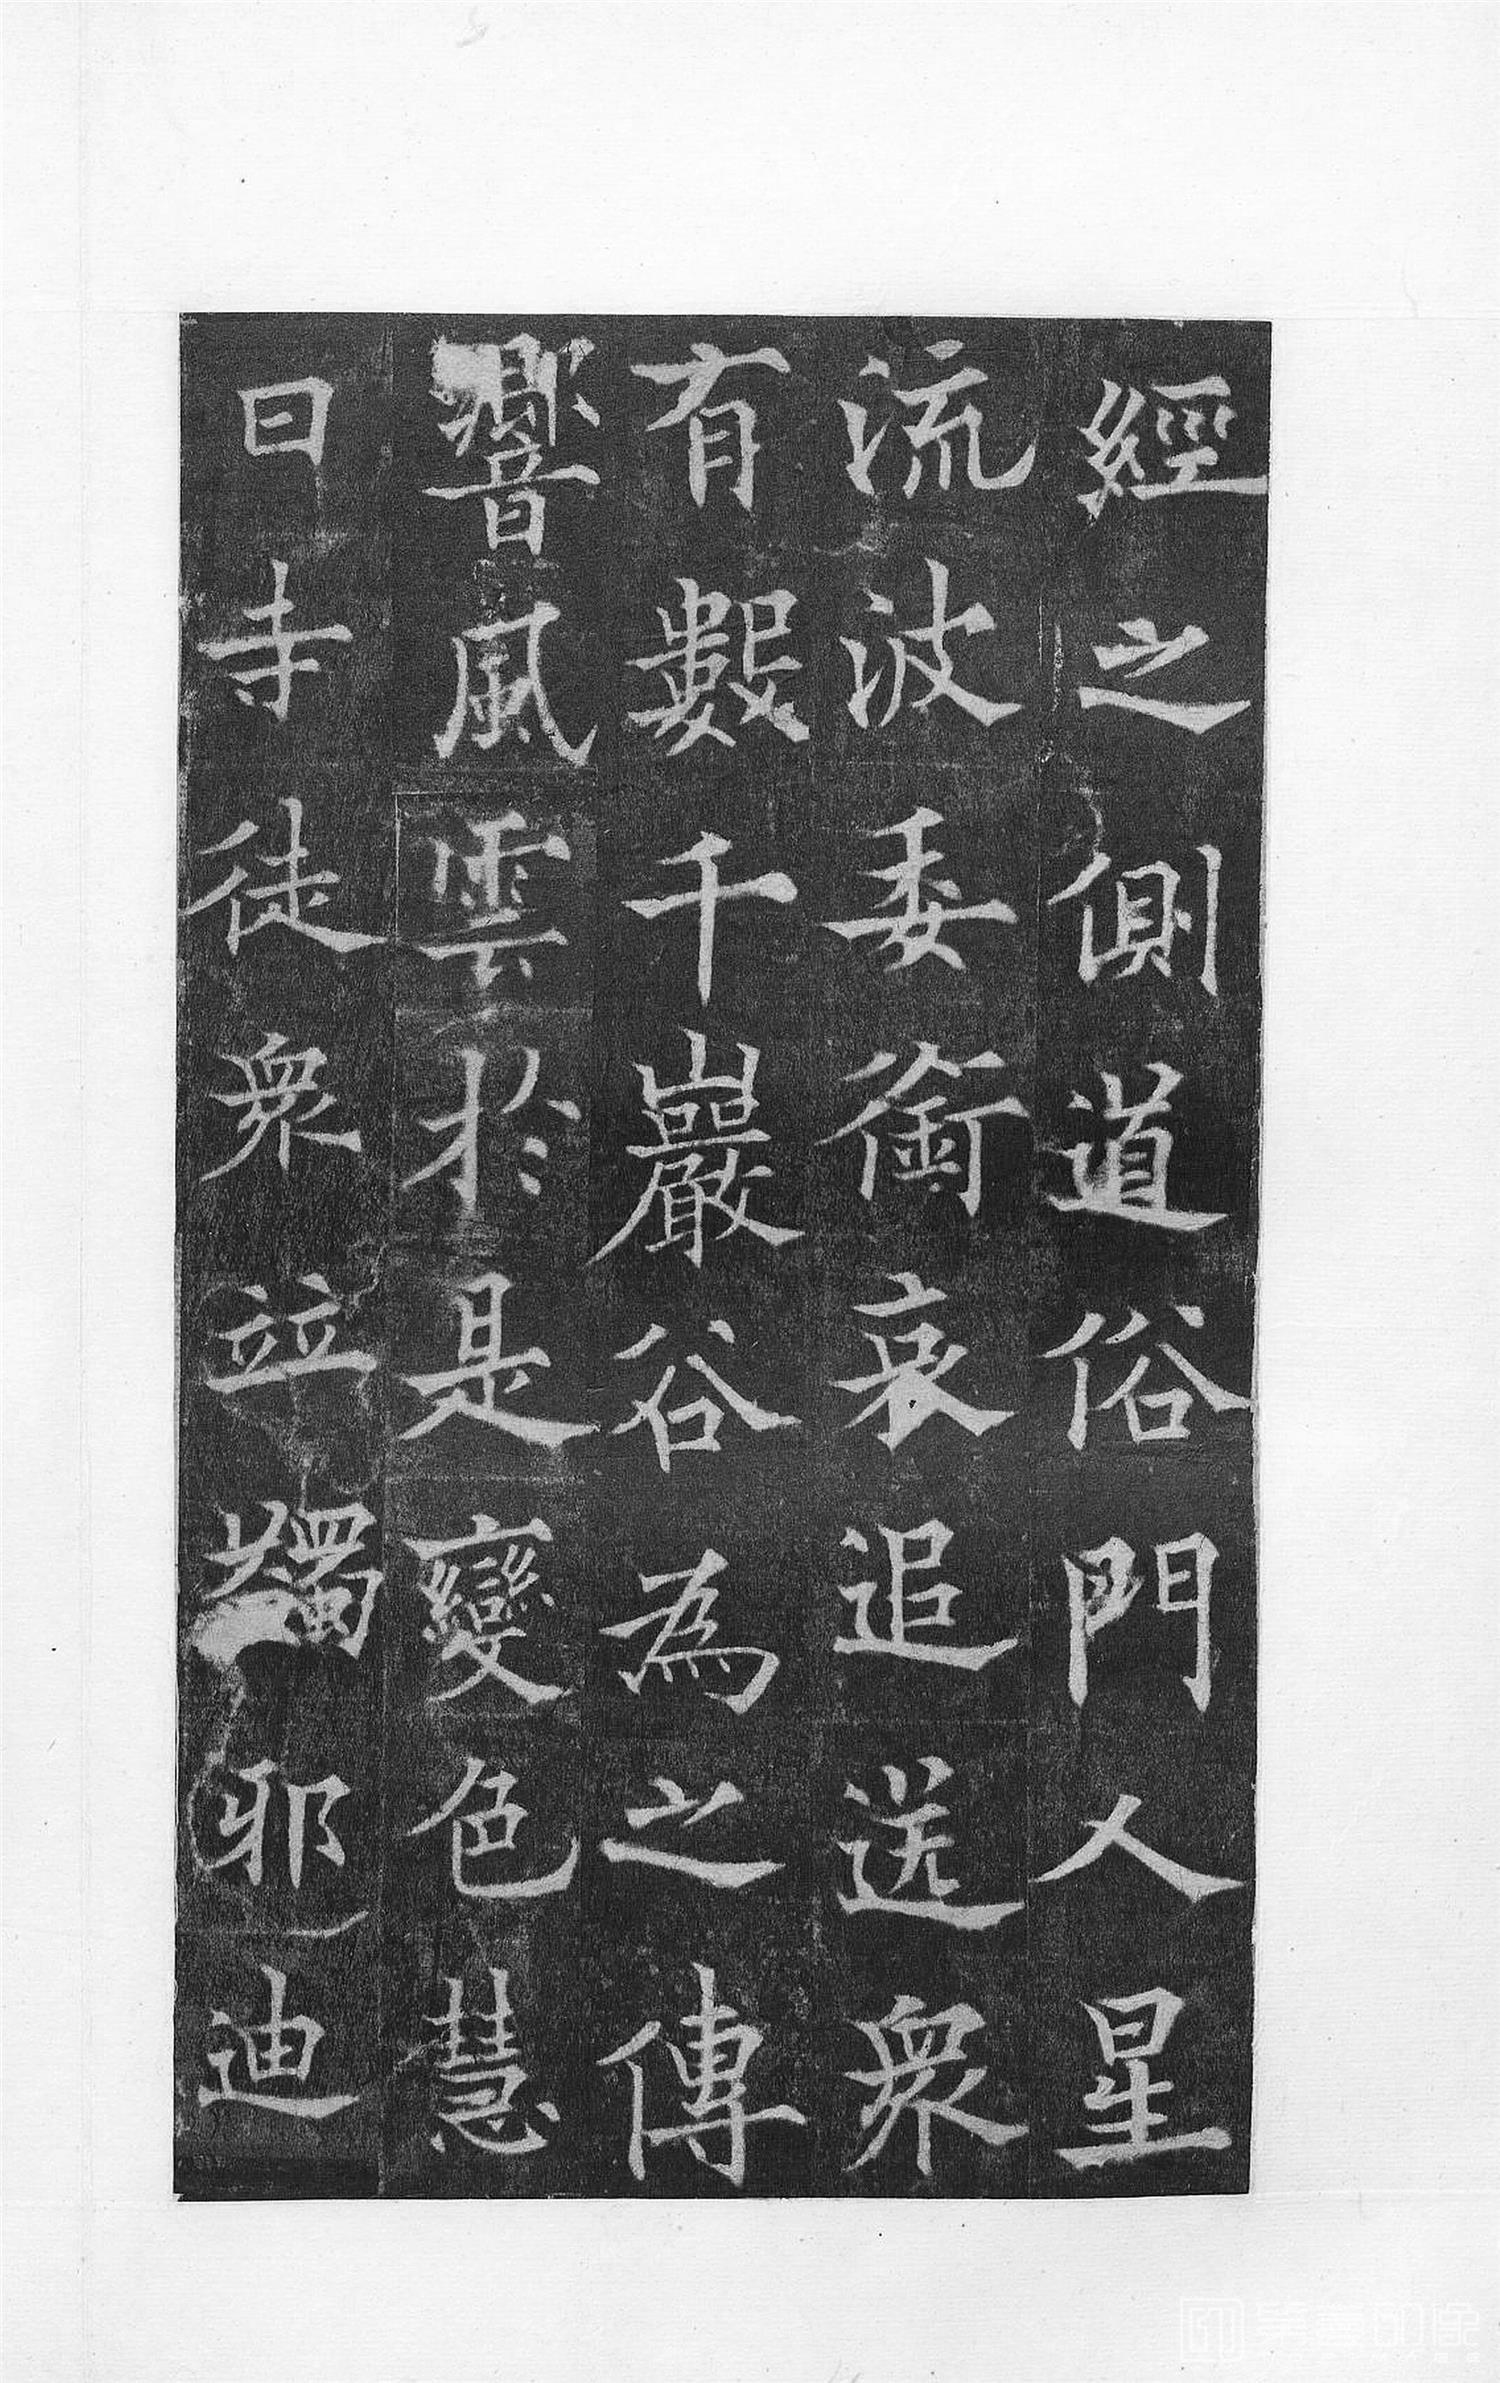 經之側道俗門人星
流波委銜哀追送眾
有數千巖谷為之傳
響風雲於是變色慧
日寺徒眾竝蠲邪迪